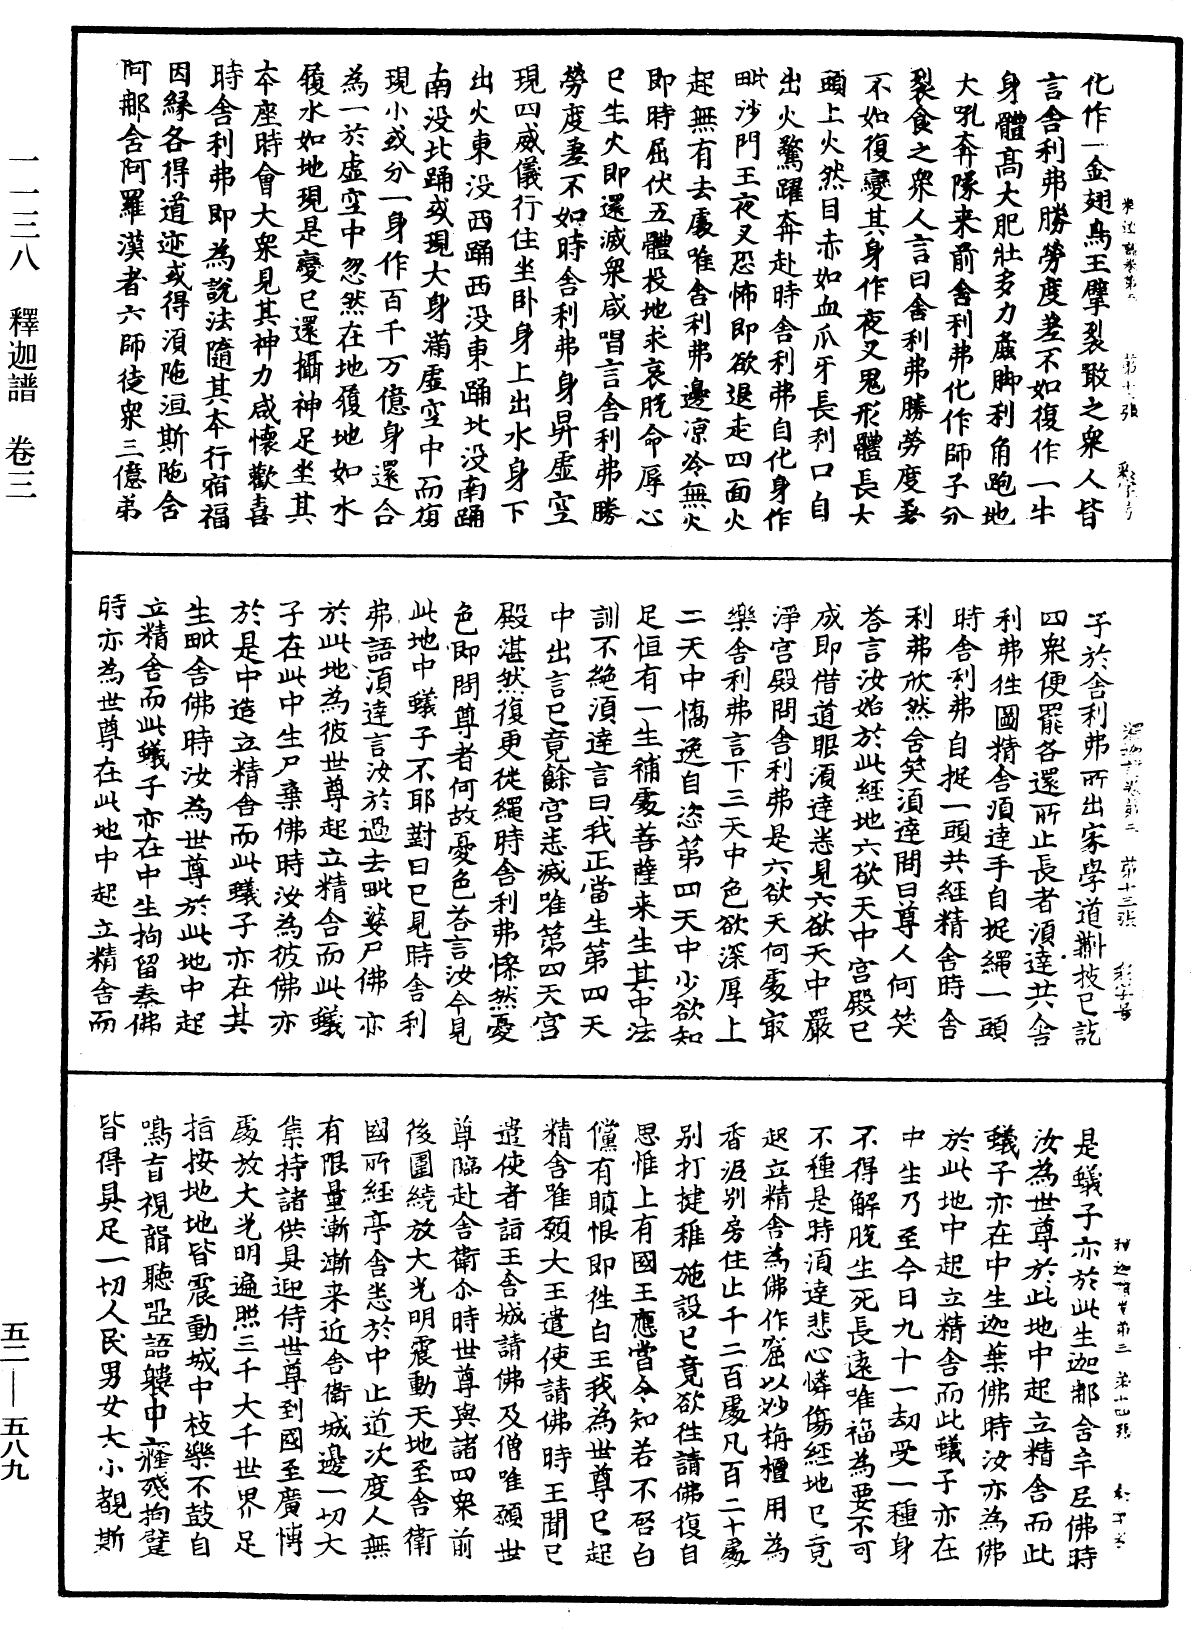 化作一金翅鳥王擘裂噉之衆人皆
言舍利弗勝勞度差不如復作一牛
身體髙大肥壯多力麁脚利角跑地
大吼奔隊来前舍利弗化作師子分
裂食之衆人言曰舍利弗勝勞度差
不如復變其身作夜叉鬼形體長大
頭上火然目赤如血爪牙長利口自
出火驚躍奔赴時舍利弗自化身作
毗沙門王夜叉恐怖即欲退走四面火
起無有去處唯舍利弗邊凉冷無火
即時屈伏五體投地求哀脫命辱心
已生火即還滅衆咸唱言舍利弗勝
勞度差不如時舍利弗身昇虛空
現四威儀行住坐卧身上出水身下
出火東没西踊西没東踊北没南踊
南没北踊或現大身滿虛空中而復
現小或分一身作百千万億身還合
為一於虛空中忽然在地履地如水
履水如地現是變已還攝神足坐其
本座時會大衆見其神力咸懷歡喜
時舍利弗即為說法隨其本行宿福
因緣各得道迹或得湏陁洹斯陁含
阿那含阿羅漢者六師徒衆三億弟
子於舍利弗所出家學道觓技已訖
四衆便罷各還所止長者湏達共舍
利弗徃圖精舍湏達手自捉繩一頭
時舍利弗自捉一頭共經精舍時舍
利弗欣然含笑湏達問曰尊人何笑
荅言汝始於此經地六欲天中宫殿已
成即借道眼湏達悉見六欲天中嚴
淨宫殿問舍利弗是六欲天何處㝡
樂舍利弗言下三天中色欲深厚上
二天中憍逸自恣第四天中少欲知
足恒有一生補處菩薩来生其中法
訓不絶湏達言曰我正當生第四天
中出言已竟餘宫悉滅唯第四天宫
殿湛然復更徙繩時舍利弗慘然憂
色即問尊者何故憂色荅言汝今見
此地中蟻子不耶對曰已見時舍利
弗語湏達言汝於過去毗婆尸佛亦
於此地為彼世尊起立精舍而此蟻
子在此中生尸棄佛時汝為彼佛亦
於是中造立精舍而此蟻子亦在其
生毗舍佛時汝為世尊於此地中起
立精舍而此蟻子亦在中生拘留秦佛
時亦為世尊在此地中起立精舍而
是蟻子亦於此生迦那含牟尼佛時
汝為世尊於此地中起立精舍而此
蟻子亦在中生迦葉佛時汝亦為佛
於此地中起立精舍而此蟻子亦在
中生乃至今日九十一劫受一種身
不得解脫生死長遠唯福為要不可
不種是時湏達悲心憐傷經地已竟
起立精舍為佛作窟以妙栴檀用為
香泥别房住止千二百處凡百二十處
别打揵稚施設已竟欲徃請佛復自
思惟上有國王應當令知若不啓白
儻有瞋恨即徃白王我為世尊已起
精舍唯願大王遣使請佛時王聞已
遣使者詣王舍城請佛及僧唯願世
尊臨赴舍衛尒時世尊與諸四衆前
後圍繞放大光明震動天地至舍衛
國所經亭舍悉於中止道次度人無
有限量漸漸来近舍衛城邊一切大
集持諸供具迎侍世尊到國至廣博
處放大光明遍照三千大千世界足
指按地地皆震動城中枝樂不鼓自
鳴盲視聾聽啞語僂申癃殘拘躄
皆得具足一切人民男女大小覩斯
一一三八 釋迦譜 卷三
五二—五八九